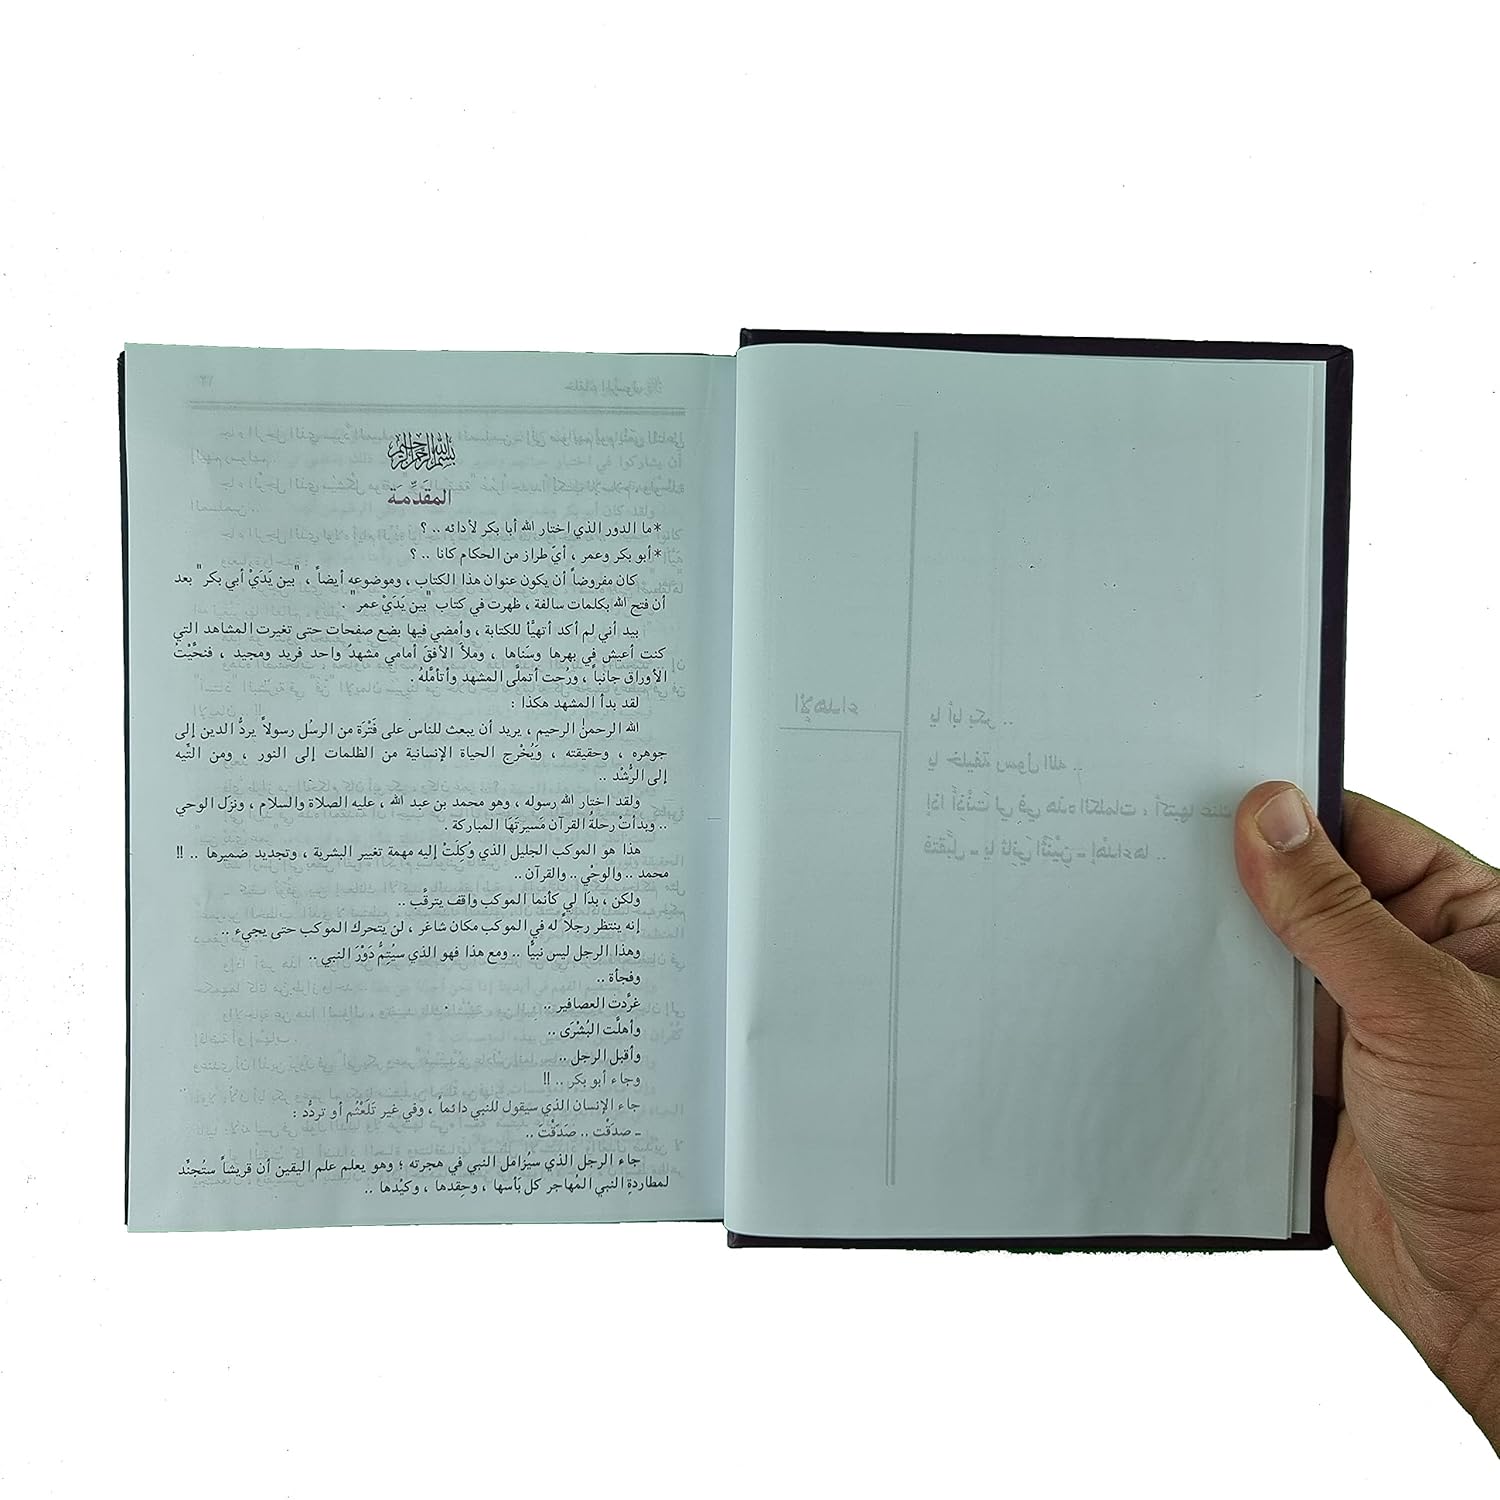 بسم الله الرحمن الرحيم
المقَدِّمَة
*ما الدور الذي اختار الله أبا بكر لأدائه .. ؟
*أبو بكر وعمر ، أيّ طراز من الحكام كانا .. ؟
كان مفروضاً أن يكون عنوان هذا الكتاب ، وموضوعه أيضاً ، "بين يَدَيْ أبي بكر" بعد
أن فتح الله بكلمات سالفة ، ظهرت في كتاب "بين يَدَيْ عمر" .
بيد أني لم أكد أتهيَّأ للكتابة ، وأمضي فيها بضع صفحات حتى تغيرت المشاهد التي
كنت أعيش في بهرها وسَناها ، وملأ الأفقَ أمامي مشهدٌ واحد فريد ومجيد ، فنحَّيْتُ
الأوراق جانباً ، ورُحت أتملَّى المشهد وأتأمَّلهُ .
لقد بدأ المشهد هكذا :
الله الرحمنُ الرحيم ، يريد أن يبعث للناس على فَتْرَة من الرسُل رسولاً يردُّ الدين إلى
جوهره ، وحقيقته ، وَيُخْرج الحياة الإنسانية من الظلمات إلى النور ، ومن التِّيه
إلى الرُّشْد ..
ولقد اختار الله رسوله ، وهو محمد بن عبد الله ، عليه الصلاة والسلام ، ونزَل الوحي
.. وبدأتْ رحلةُ القرآن مَسيرتَهَا المباركة .
هذا هو الموكب الجليل الذي وُكلَتْ إليه مهمة تغيير البشرية ، وتجديد ضميرها .. !!
محمد .. والوحْي .. والقرآن ..
ولكن ، بدَا لي كأنما الموكب واقف يترقَّب ..
إنه ينتظر رجلاً له في الموكب مكان شاغر ، لن يتحرك الموكب حتى يجيء ..
وهذا الرجل ليس نبيًّا .. ومع هذا فهو الذي سيُتِمُّ دَوْرَ النبي ..
وفجأة ..
غرَّدت العصافير ..
وأهلَّت البُشْرَى ..
وأقبل الرجل ..
وجاء أبو بكر .. !!
جاء الإنسان الذي سيقول للنبي دائماً ، وفي غير تَلَعْثُم أو تردُّد :
ـ صدَقْت .. صَدَقْتَ ..
جاء الرجل الذي سيُزامَل النبي في هجرته ؛ وهو يعلم علم اليقين أن قريشاً ستُجنِّد
لمطاردةِ النبي المُهاجر كل بَأسها ، وحِقدها ، وكيْدها ..
الإهداء
يا أبا بكر ..
يا خليفة رسول الله ..
إذا أَذِنْتَ لي في هذه الكلمات ، أكتبها عنك
فتقبَّل ـ يا ثانِيَ اثْنَيْن ـ إهْداءها ..